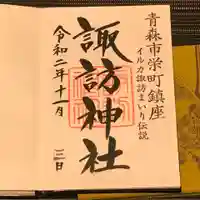 青森市栄町鎮座
イルカ諏訪まいり伝説
諏訪神社
令和二年十一月二三日